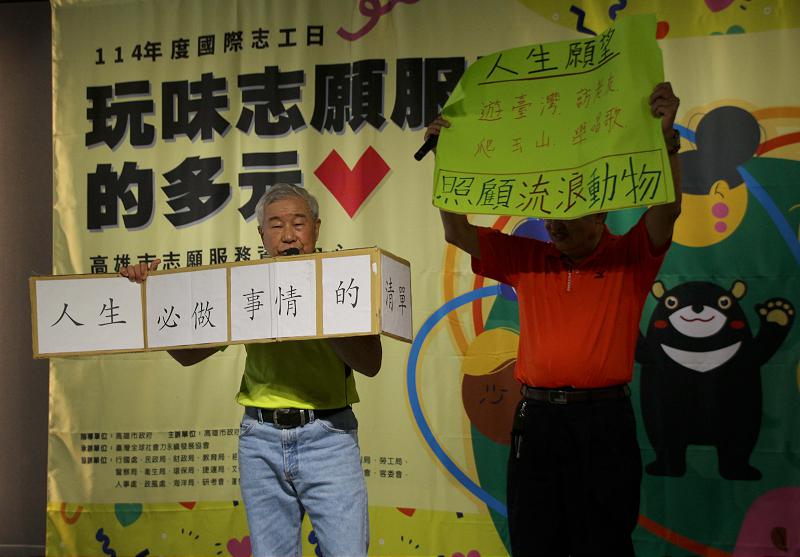 114年度國際志工日
玩味志願服
的多元
高雄市志願服務資 中心
人生必做事情的清單
人生願望
遊臺灣 訪老友
爬玉山 樂唱歌
照顧流浪動物
指導單位：高雄市政府 主辦單位：高雄市
承辦單位：臺灣全球社會力永續發展協會
協辦單位：行國處、民政局、財政局、教育局、經 局、勞工局、
警察局、衛生局、環保局、捷運局、文 會、客委會、
人事處、政風處、海洋局、研考會、運